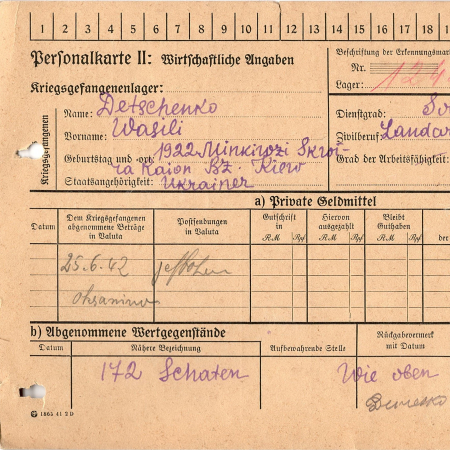 1 2 3 4 5 6 7 8 9 10 11 12 13 14 15 16 17 18
Personalkarte II: Wirtschaftliche Angaben
Beschriftung der Erkennungsmar
Nr.
Lager:
Kriegsgefangenenlager:
Kriegsgefangenen
des
Name: Detschenko
Vorname: Wasili
Geburtstag und -ort: 1922. Minkiwzi Skwi-
ra Raion Bz. Kiew
Staatsangehörigkeit: Ukrainer
Dienstgrad: So
Zivilberuf: Landar
Grad der Arbeitsfähigkeit:
a) Private Geldmittel
Datum
Dem Kriegsgefangenen abgenommene Beträge in Valuta
Postsendungen in Valuta
Gutschrift in
RM Rpf
Hiervon ausgezahlt
RM Rpf
Bleibt Guthaben
RM Rpf
der
25.6.42
b) Abgenommene Wertgegenstände
Datum
Nähere Bezeichnung
Aufbewahrende Stelle
Rückgabevermerk mit Datum
172 Schaten
Wie oben
1865 41 2 D